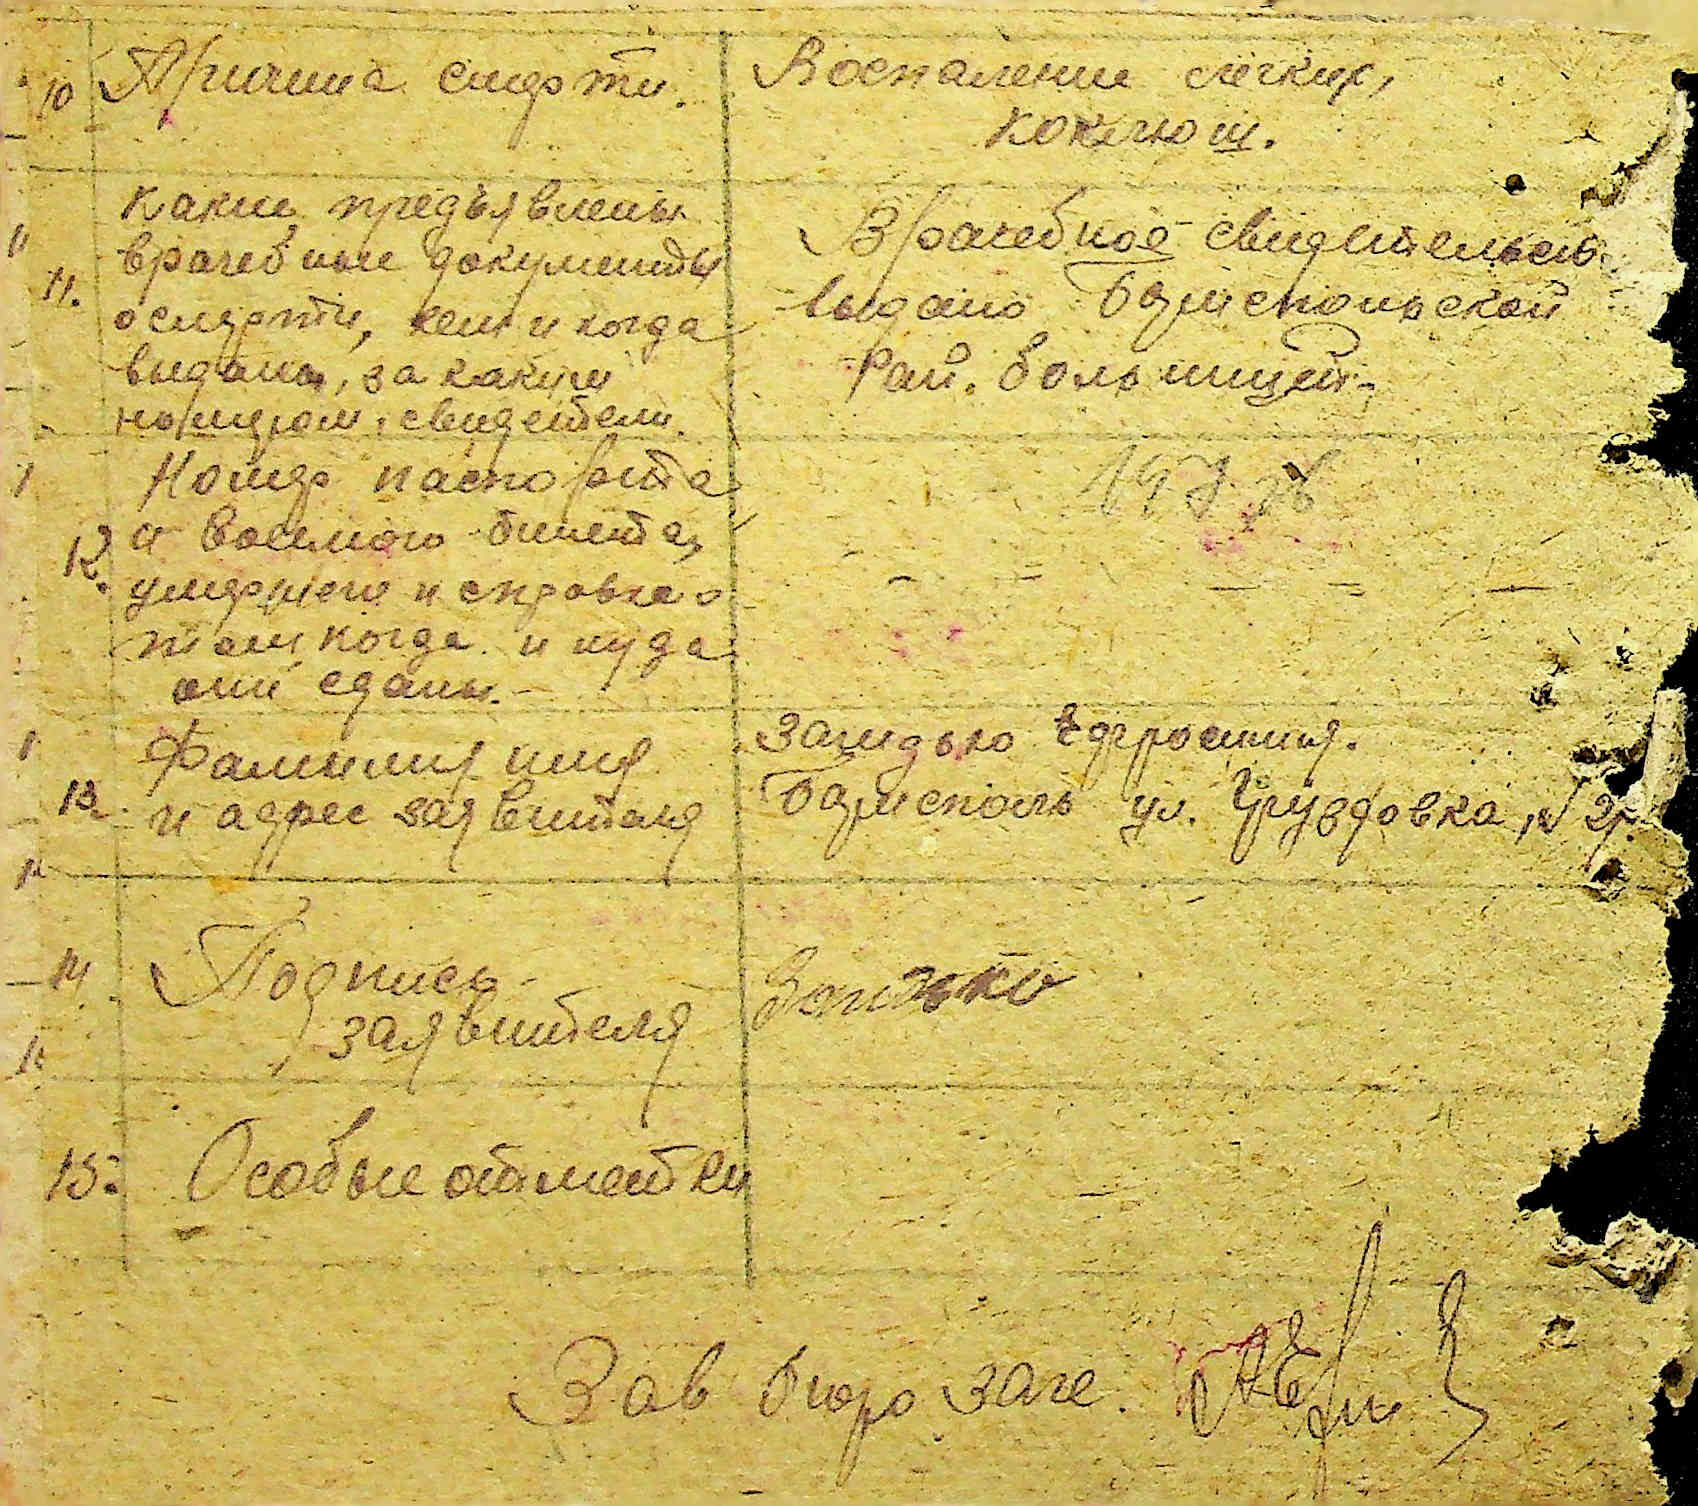 10 Причина смерти.
Воспаление легких,
коклющ.
11. Какие предъявлены
врачебные документы
о смерти, кем и когда
выданы, за каким
номером, свидетели.
Врачебное свидетельство
выдано Бориспольской
Рай. больницей-
12. Номер паспорта
и военного билета,
умершего и справка о
том когда и куда
они сданы.-
13. Фамилия имя
и адрес заявителя
Борисполь ул.
14. Подпись
заявителя
15. Особые отметки
Зав бюро загс.